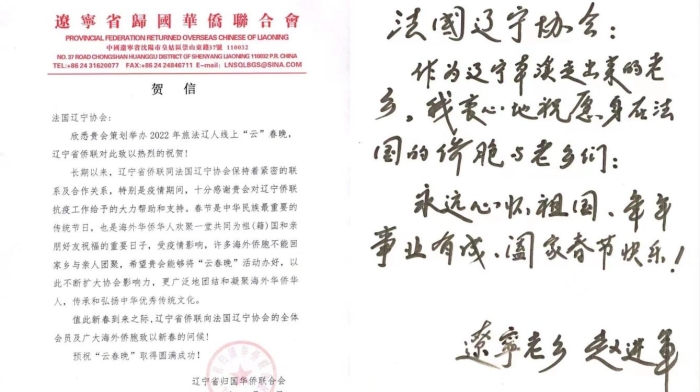 遼寧省歸國華僑聯合會
PROVINCIAL FEDERATION RETURNED OVERSEAS CHINESE OF LIAONING
中國遼寧省沈陽市皇姑區崇山東路37號 110032
NO. 37 ROAD CHONGSHAN HUANGGU DISTRICT OF SHENYANG LIAONING 110032 P.R. CHINA
TEL:+86 24 31620077 FAX:+86 24 24846711 E-mail: LNSQLBGS@SINA.COM
贺 信
法国辽宁协会:
欣悉贵会策划举办 2022 年旅法辽人线上“云”春晚,
辽宁省侨联对此致以热烈的祝贺!
长期以来,辽宁省侨联同法国辽宁协会保持着紧密的联
系及合作关系,特别是疫情期间,十分感谢贵会对辽宁侨联
抗疫工作给予的大力帮助和支持。春节是中华民族最重要的
传统节日,也是海外华侨华人欢聚一堂共同为祖(籍)国和亲
朋好友祝福的重要日子,受疫情影响,许多海外侨胞不能回
家乡与亲人团聚,希望贵会能够将“云春晚”活动办好,以
此不断扩大协会影响力,更广泛地团结和凝聚海外华侨华
人,传承和弘扬中华优秀传统文化。
值此新春到来之际,辽宁省侨联向法国辽宁协会的全体
会员及广大海外侨胞致以新春的问候!
预祝“云春晚”取得圆满成功!
辽宁省归国华侨联合会
法国辽宁协会:
作为辽宁本溪走出来的老
乡,我衷心地祝愿身在法
国的侨胞与老乡们:
永远心怀祖国、年年
事业有成、阖家春节快乐!
辽宁老乡 赵进军